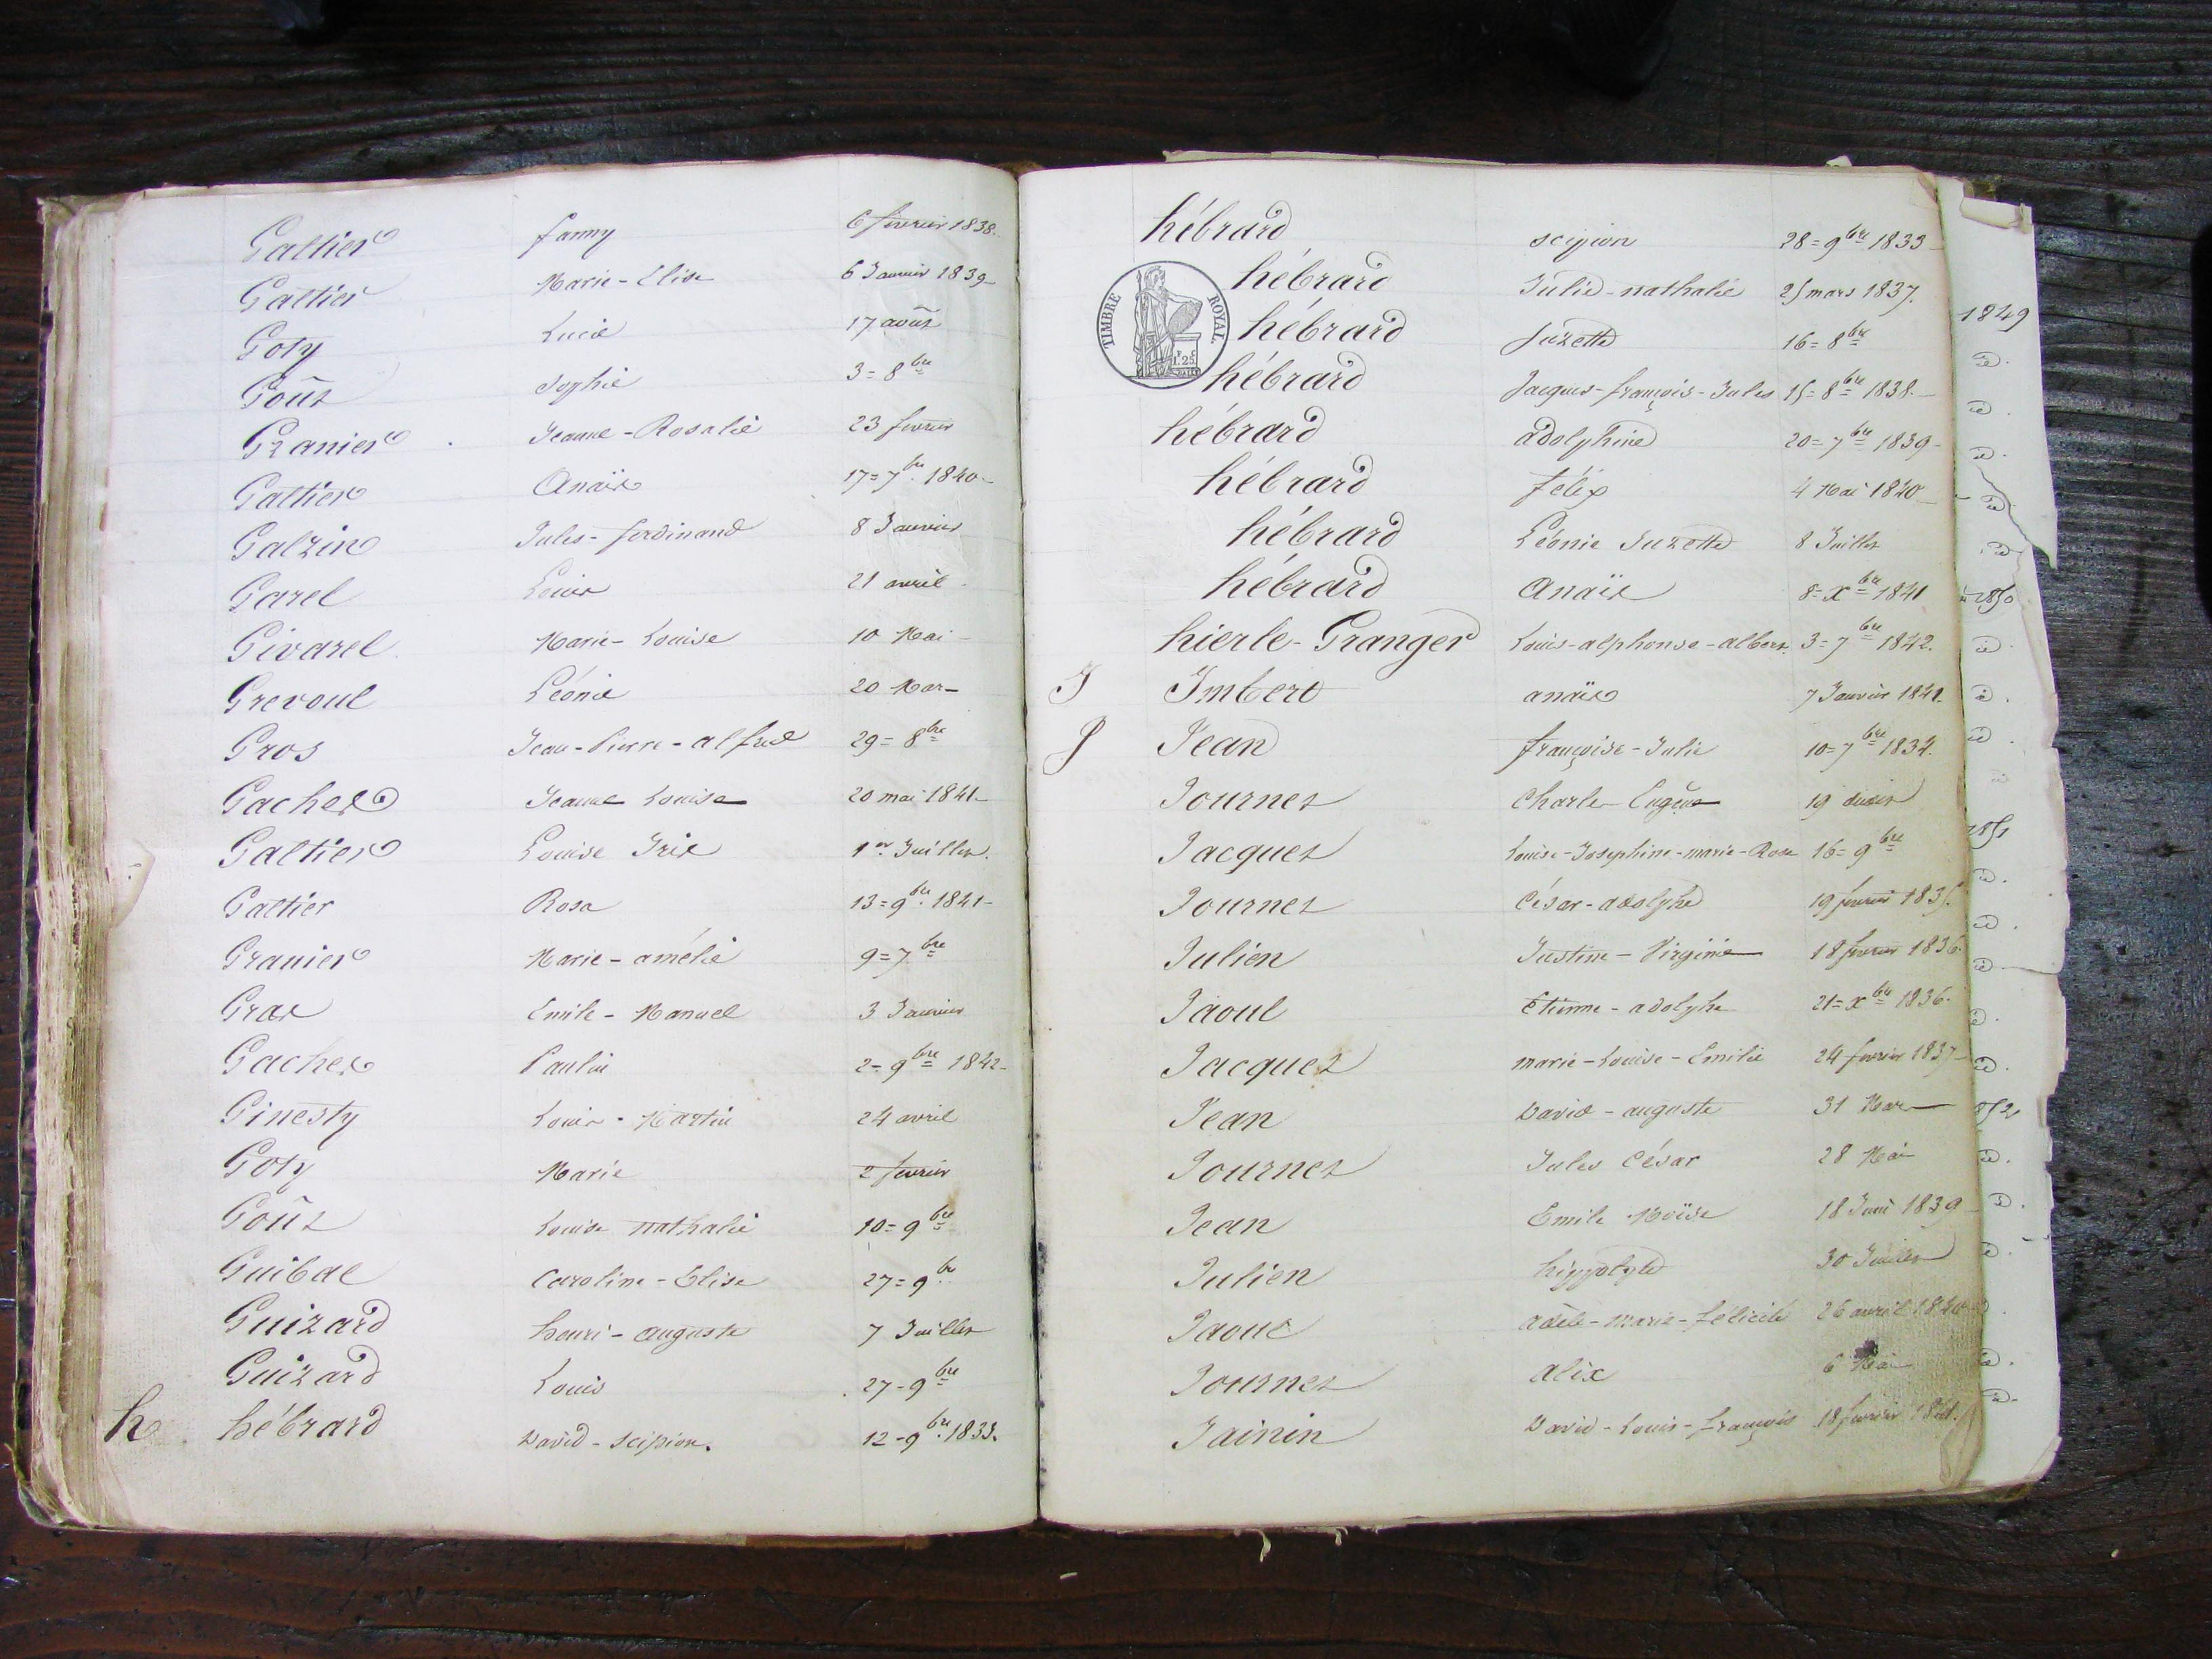 Galtier fanny 6 fevrier 1838.
Galtier Marie-Elise 6 Janvier 1839
Goty Lucie 17 août
Goût Sophie 3=8bre
Granier Jeanne-Rosalie 23 fevrier
Galtier Anaïs 17=7bre 1840
Galzin Jules-ferdinand 8 Janvier
Garel Louis 21 avril
Givarel Marie-Louise 10 Mai
Grevoul Léonie 20 Mars
Gros Jean-Pierre-alfred 29=8bre
Gaches Jeanne Louise 20 mai 1841
Galtier Louise Irie 1er Juillet
Galtier Rosa 13=9bre 1841
Granier Marie-amélie 9=7bre
Gras Emile-Manuel 3 Janvier
Gaches Paulin 2=9bre 1842
Ginesty Louis-Martin 24 avril
Goty Marie 2 fevrier
Goût Louise nathalie 10=9bre
Guibal Caroline-Elise 27=9bre
Guizard henri-auguste 7 Juillet
Guizard Louis 27-9bre
h hébrard David-scipion. 12-9bre 1833.
hébrard scipion 28=9bre 1833
TIMBRE ROYAL
1.25
hébrard Julie-nathalie 25 mars 1837.
hébrard Suzette 16=8bre
hébrard Jacques-françois-Jules 15=8bre 1838.
hébrard adolphine 20=7bre 1839
hébrard félix 4 Mai 1840
hébrard Léonie Suzette 8 Juillet
hébrard Anaïs 8=Xbre 1841
hierle-Granger Louis-alphonse-albert. 3=7bre 1842.
I Imbert anaïs 7 Janvier 1841.
J Jean françoise-Julie 10=7bre 1834.
Journet Charles Eugène 19
Jacques Louise-Josephine-marie-Rose 16=9bre
Journet César-adolphe 19 fevrier 1835.
Julien Justine-Virginie 18 fevrier 1836.
Jaoul Etienne-adolphe 21=Xbre 1836.
Jacques marie-Louise-Emilie 24 fevrier 1837
Jean David-auguste 31 Mars
Journet Jules César 28 Mai
Jean Emile Moïse 18 Juin 1839
Julien hippolyte 30 Juillet
Jaoul adèle-marie-félicité 26 avril 1840
Journet alix 6 Mai
Jainin David-Louis-françois 18 fevrier 1841.
1849